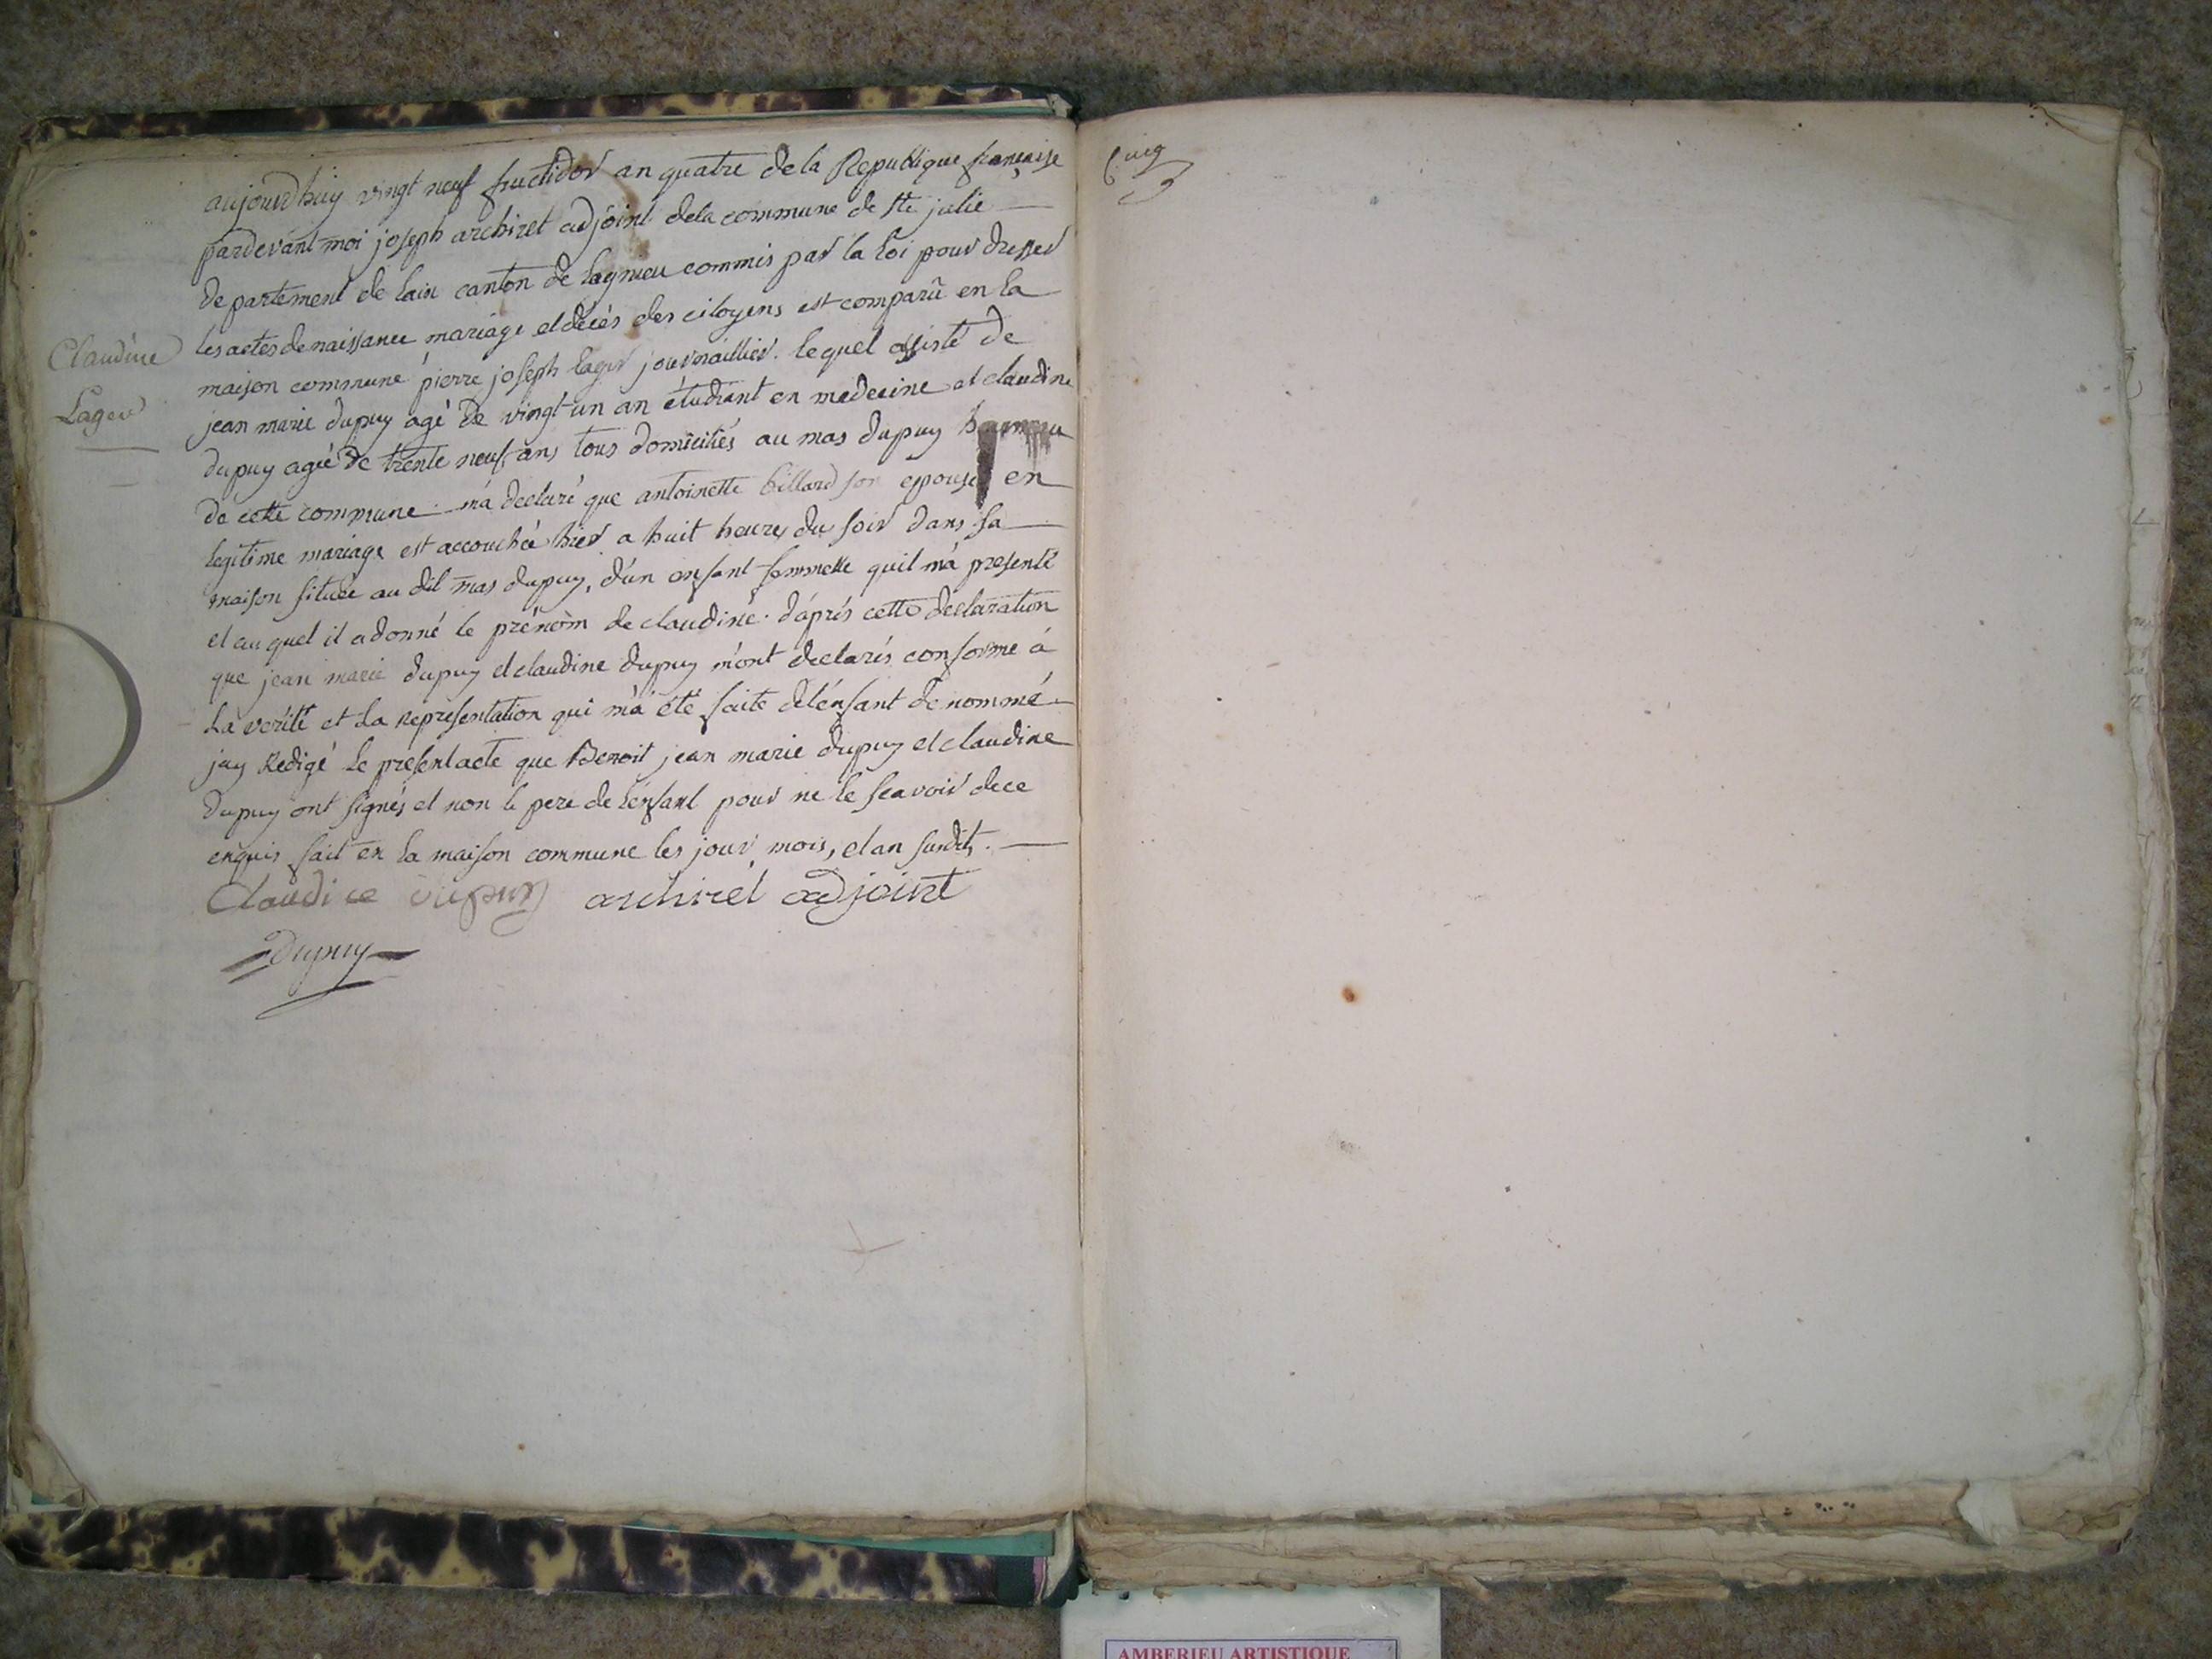 aujourdhuy vingt neuf fructidor an quatre de la Republique française
pardevant moi joseph archiret adjoint dela commune de Ste julie
departement de lain canton de Lagnieu commis par la Loi pour dresser
les actes de naissance mariage et décès des citoyens est comparû en la
maison commune pierre joseph lager journaillier. lequel assisté de
jean marie dupuy agé de vingt-un an étudiant en medecine et claudine
dupuy agée de trente neuf ans tous domiciliés au mas dupuy hameau
de cette commune m'a declaré que antoinette billard son epouse en
Legitime mariage est accouchée hier a huit heures du soir dans sa
maison située au dit mas dupuy, d'un enfant femmelle quil m'a presenté
et au quel il a donné le prénom de claudine. d'après cette declaration
que jean marie dupuy et claudine dupuy m'ont declarés conforme á
La verité et La representation qui m'a été faite de l'énfant denommé
jay Redigé Le present acte que Benoit jean marie dupuy et claudine
dupuy ont signés et non le pere de Lénfant pour ne le sçavoir dece
enquis fait en La maison commune les jour, mois, et an susdits.
Claudine
Lager
Claudice dupuy archirel adjoint
Dupuy
Cinq
AMBERIEU ARTISTIQUE